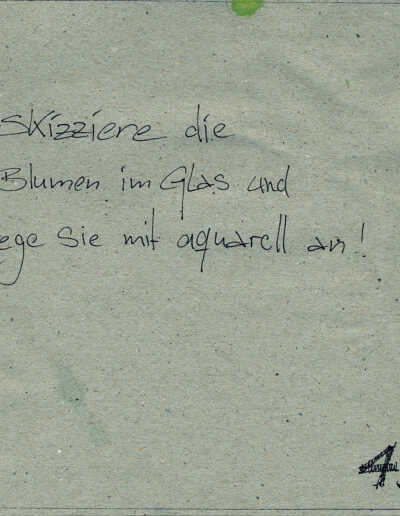 Skizziere die
Blumen im Glas und
ege Sie mit aquarell an!
1.